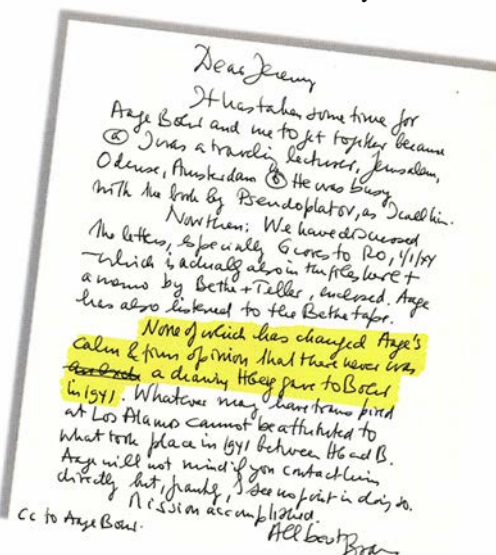 Dear Jeremy
It has taken some time for
Aage Bohr and me to get together because
ⓐ I was a traveling lecturer, Jerusalem,
Odense, Amsterdam ⓑ He was busy
with the book by Pseudoplator, as I call him.
Now then: We have discussed
the letters, especially Groves to RO, 1/1/44
– which is actually also in the files here +
a memo by Bethe + Teller, enclosed. Aage
has also listened to the Bethe tape.
None of which has changed Aage's
calm & firm opinion that there never was
a drawing Hbeg gave to Bohr
in 1941. Whatever may have transpired
at Los Alamos cannot be attributed to
what took place in 1941 between H and B.
Aage will not mind if you contact him
directly but, frankly, I see no point in doing so.
Mission accomplished.
All best
cc to Aage Bohr.